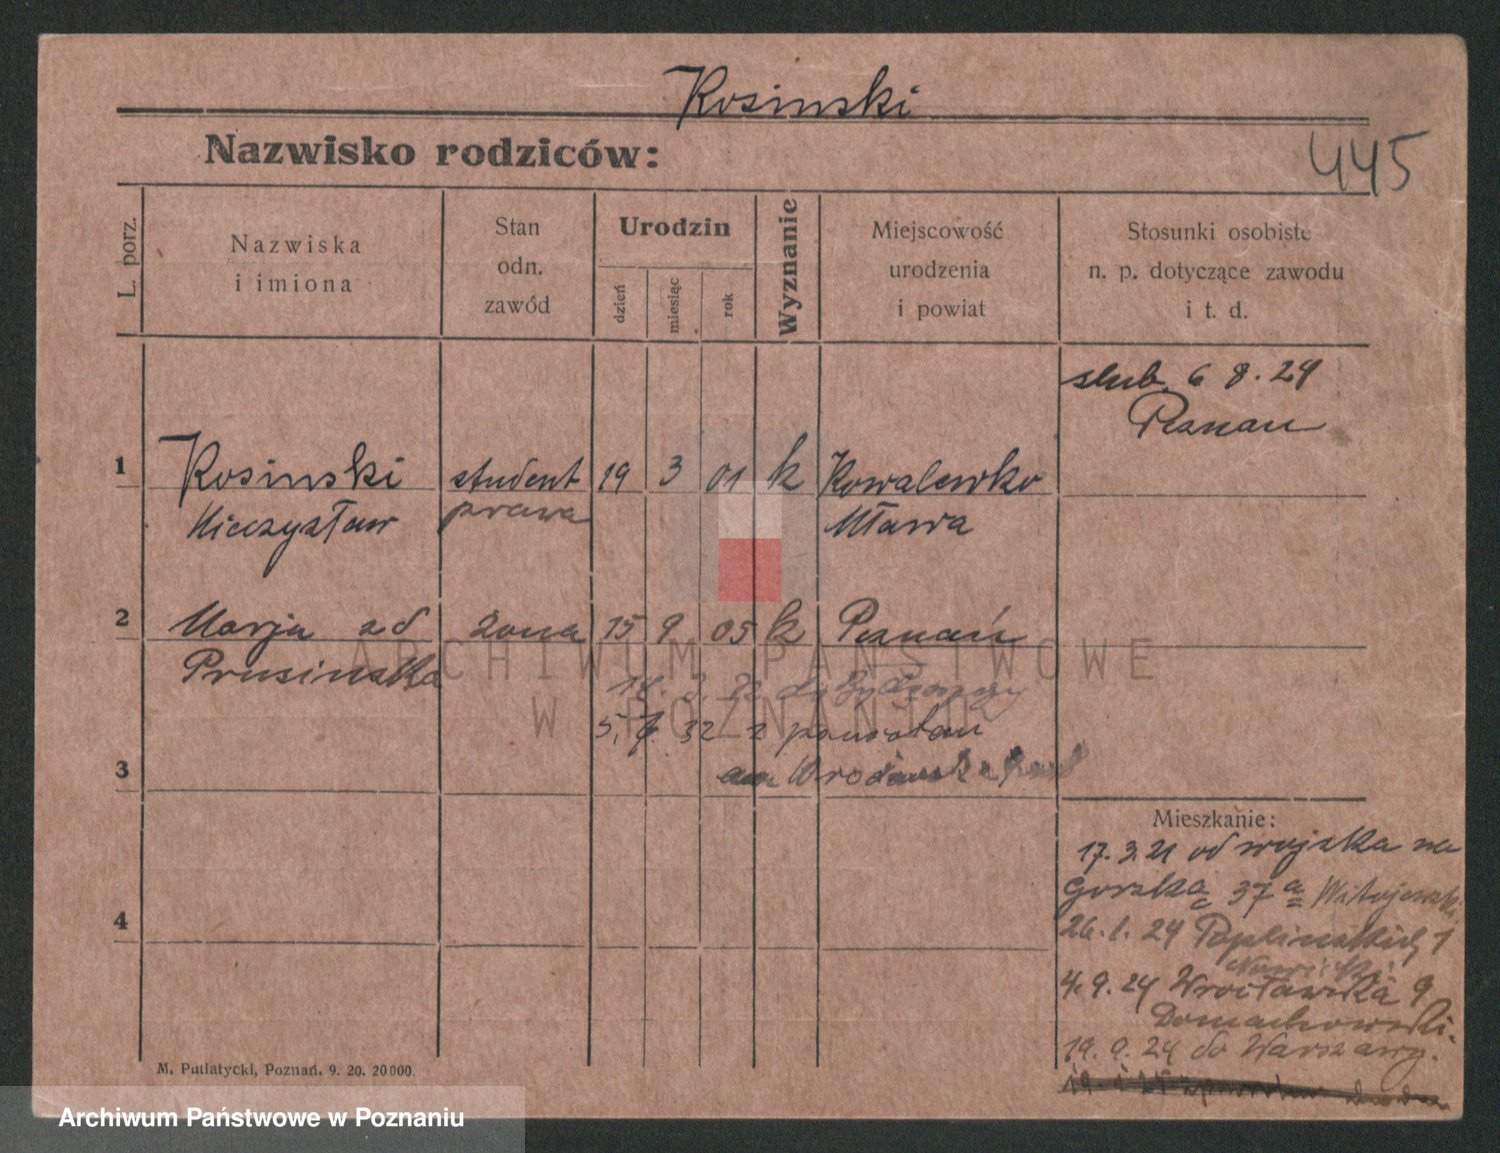 Kosinski
Nazwisko rodziców:
445
L. porz.
Nazwiska
i imiona
Stan
odn.
zawód
Urodzin
dzień
miesiąc
rok
Wyznanie
Miejscowość
urodzenia
i powiat
Stosunki osobiste
n. p. dotyczące zawodu
i t. d.
slub. 6 8. 24
Poznan
1
Kosinski student 19 3 01 k Kowalewko
Mieczysław prawa Mława
2
Marja zd żona 15 9 05 k Poznań
Prusinska
18. 3. 32 do Bydgoszczy
5. 7. 32 z powrotem
3
4
Mieszkanie:
17. 3. 21 od wojska na
37 a
26. 1. 24 Poplinskich 1
4. 9. 24 Wrocławska 9
Domachowski.
19. 9. 24 do Warszawy.
M. Putiatycki, Poznań. 9. 20. 20000.
ARCHIWUM PAŃSTWOWE
W POZNANIU
Archiwum Państwowe w Poznaniu